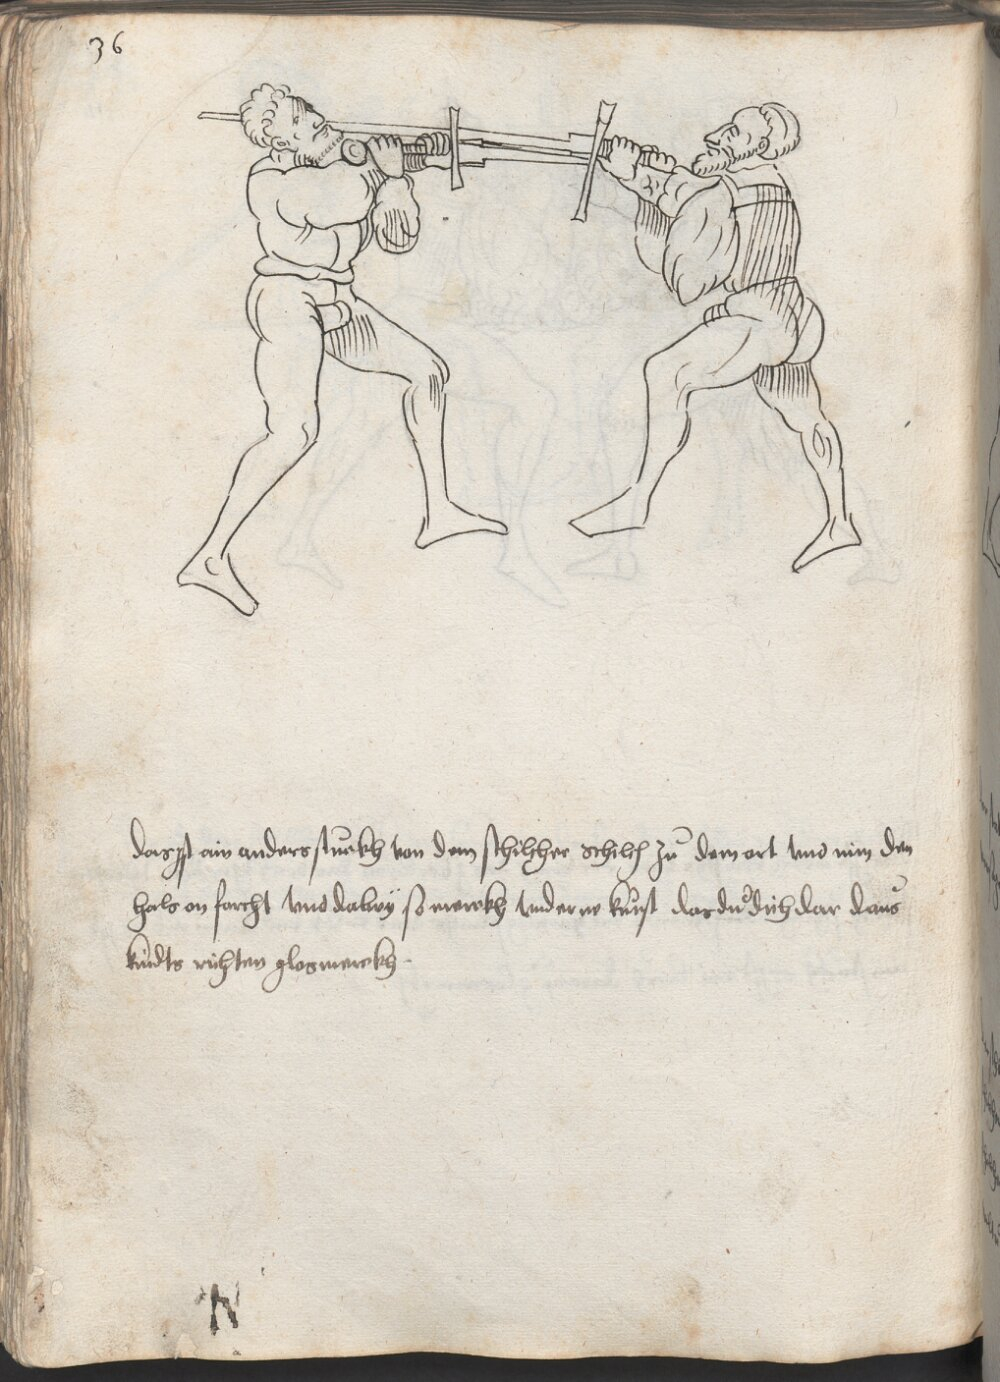 36
das ist ain anders stuckh von dem schilcher schilch zu dem ort vnd nim den
hals on forcht vnd dabey so merckh vnd erw kunst das du dich dar daus
kindts richten glos merckh
N